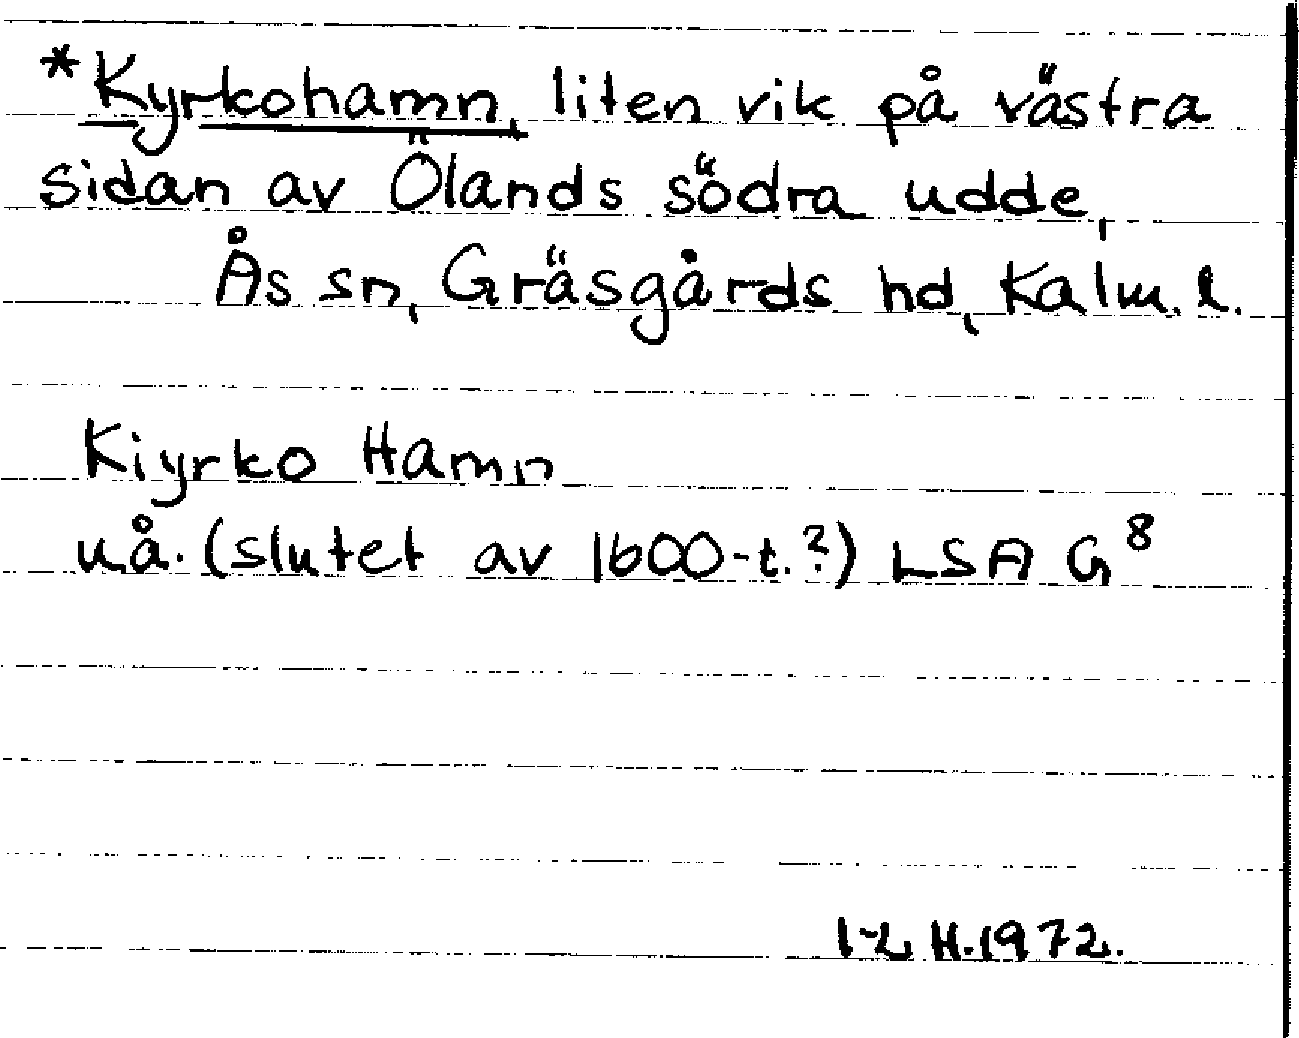 *Kyrkohamn, liten vik på västra
sidan av Ölands södra udde,
Ås sn, Gräsgårds hd, Kalm. l.
Kiyrko Hamn
u.å. (slutet av 1600-t.?) LSA G⁸
H. 1972.